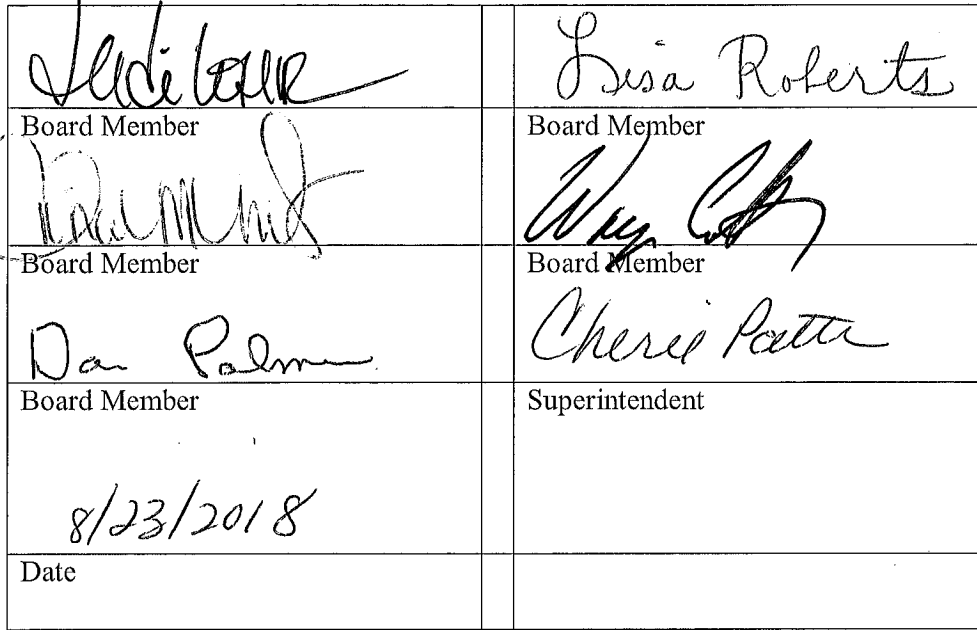 Lisa Roberts
Board Member
Board Member
Board Member
Board Member
Dan Palmer
Cherie Patte
Board Member
Superintendent
8/23/2018
Date